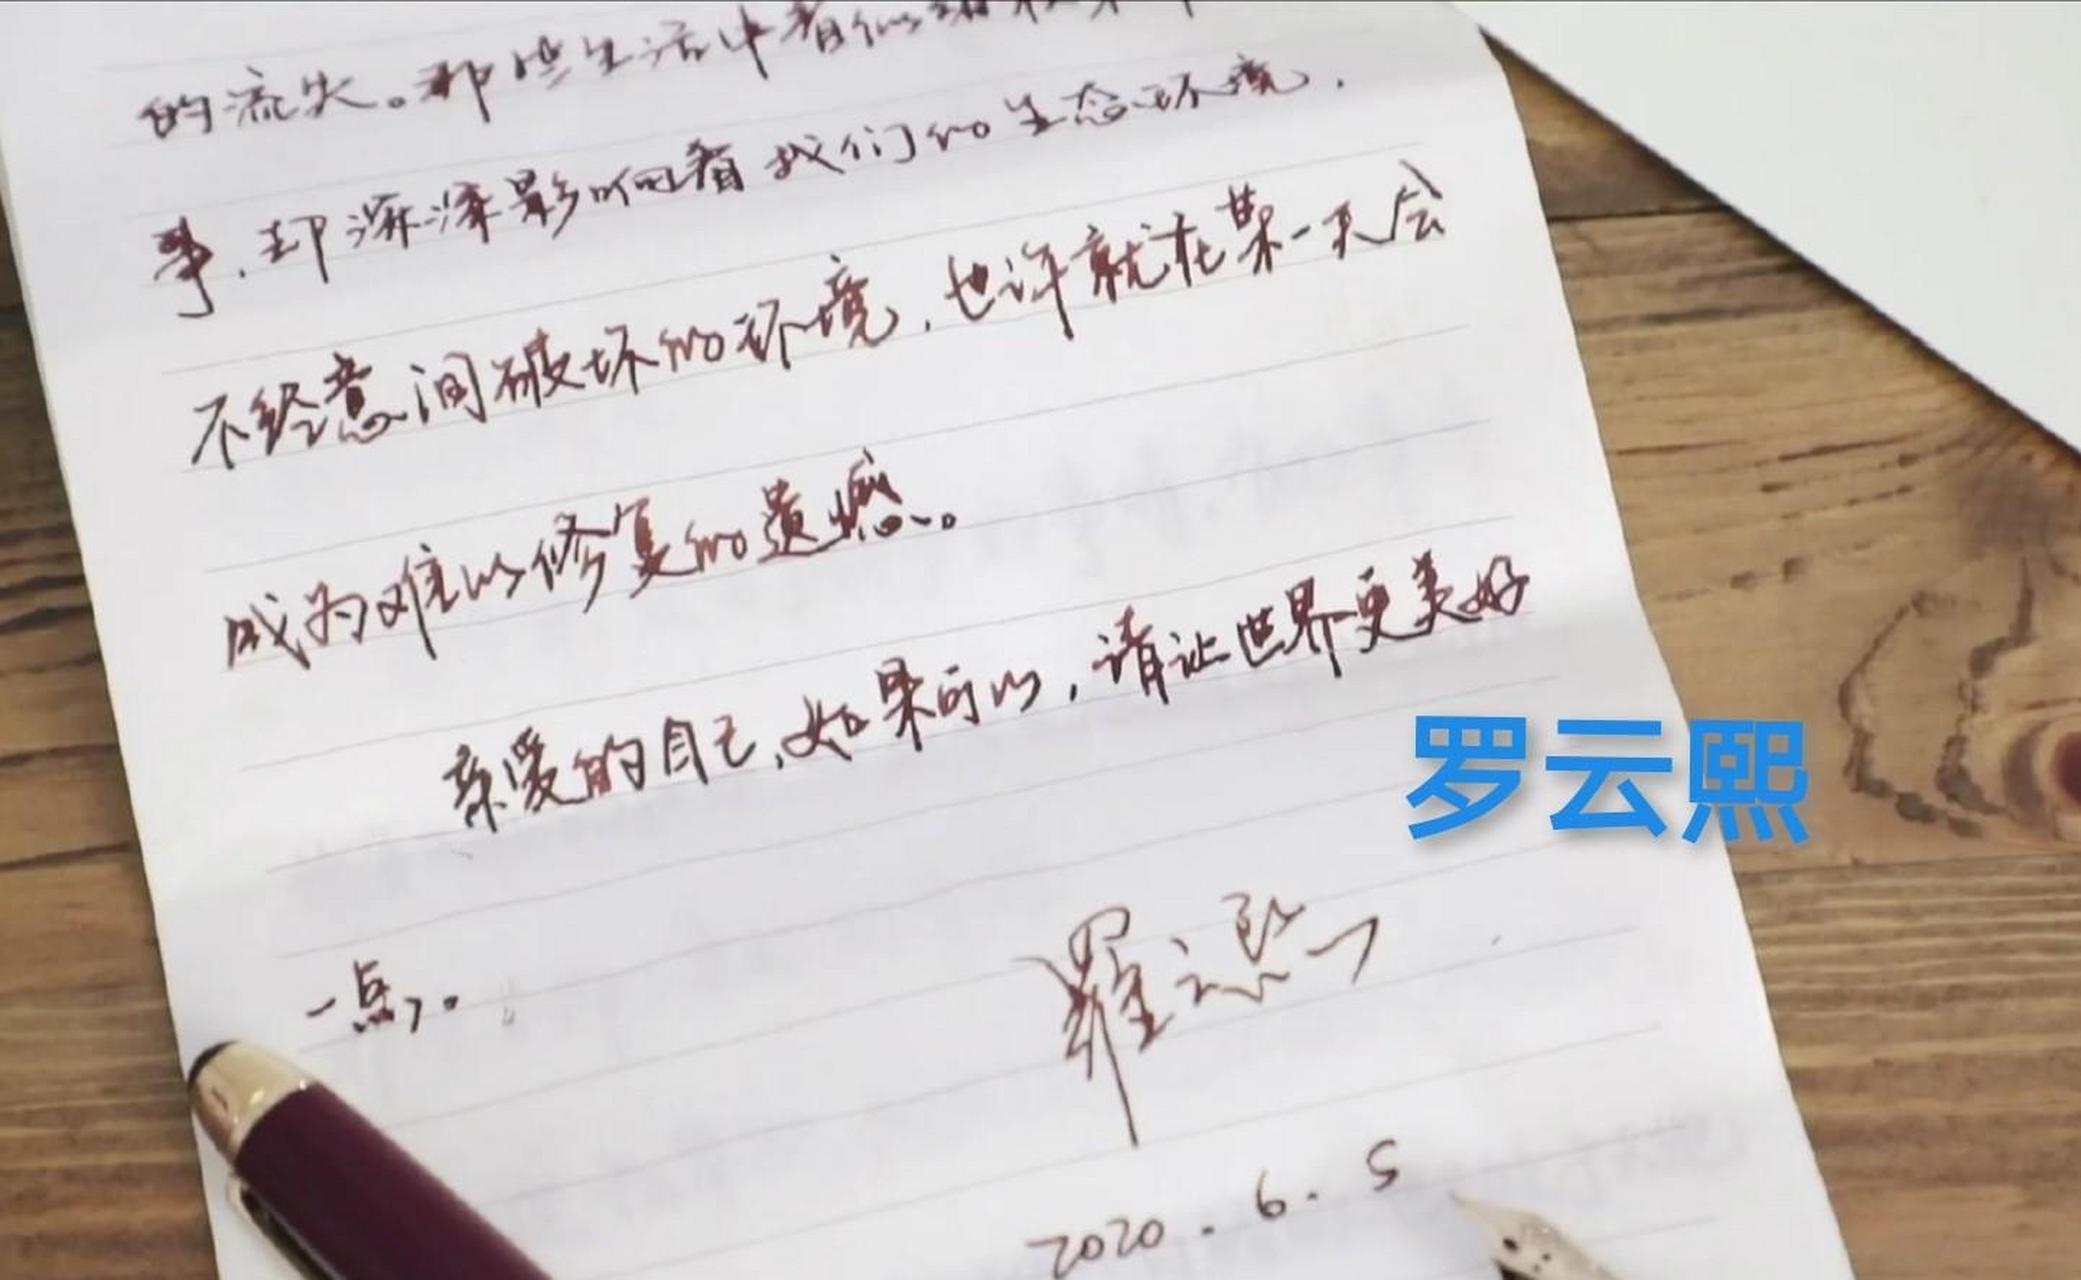 的流失。那些生活中看似
事，却深深影响着我们的生态环境，
不经意间破坏的环境，也许就在某一天会
成为难以修复的遗憾。
亲爱的自己，如果可以，请让世界更美好
罗云熙
一点。
羅云熙
2020.6.5